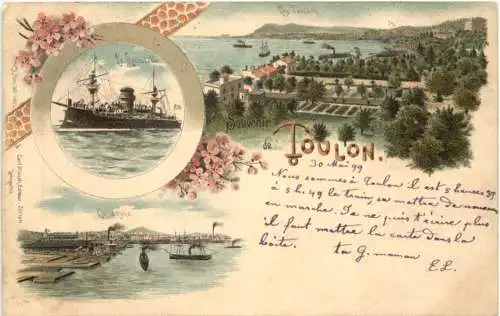 Les Sablettes
Souvenir
de
TOULON.
30 Mai 99
Nous sommes à Toulon il est 5 heures 39
à 5 h. 49 le train se mettra de nouveau
en marche. Je ne puis t'écrire plus
il faut mettre la carte dans la
boîte. ta G. maman
E.L.